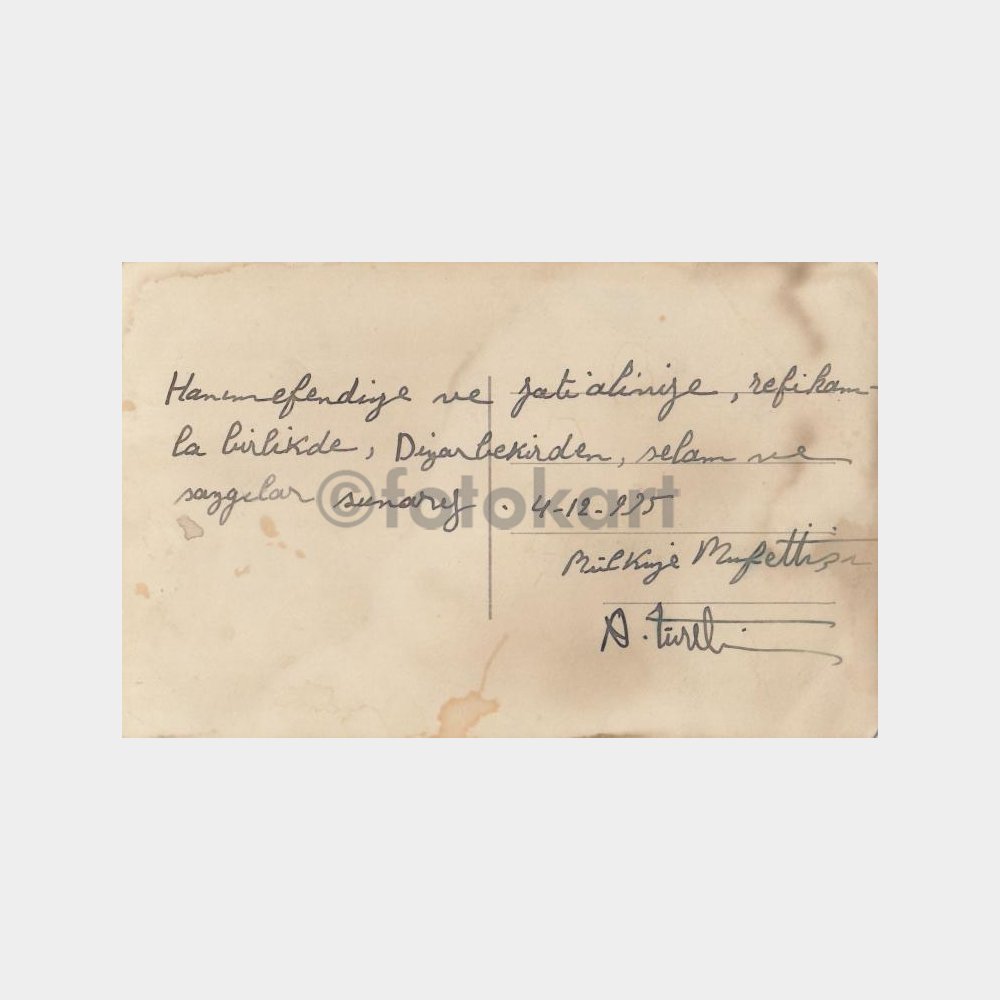 Hanımefendiye ve zatıalinize, refikam-
la birlikde, Diyarbekirden, selam ve
saygılar sunarız. 4-12-935
©fotokart
Mülkiye Müfettişi
A. Türel